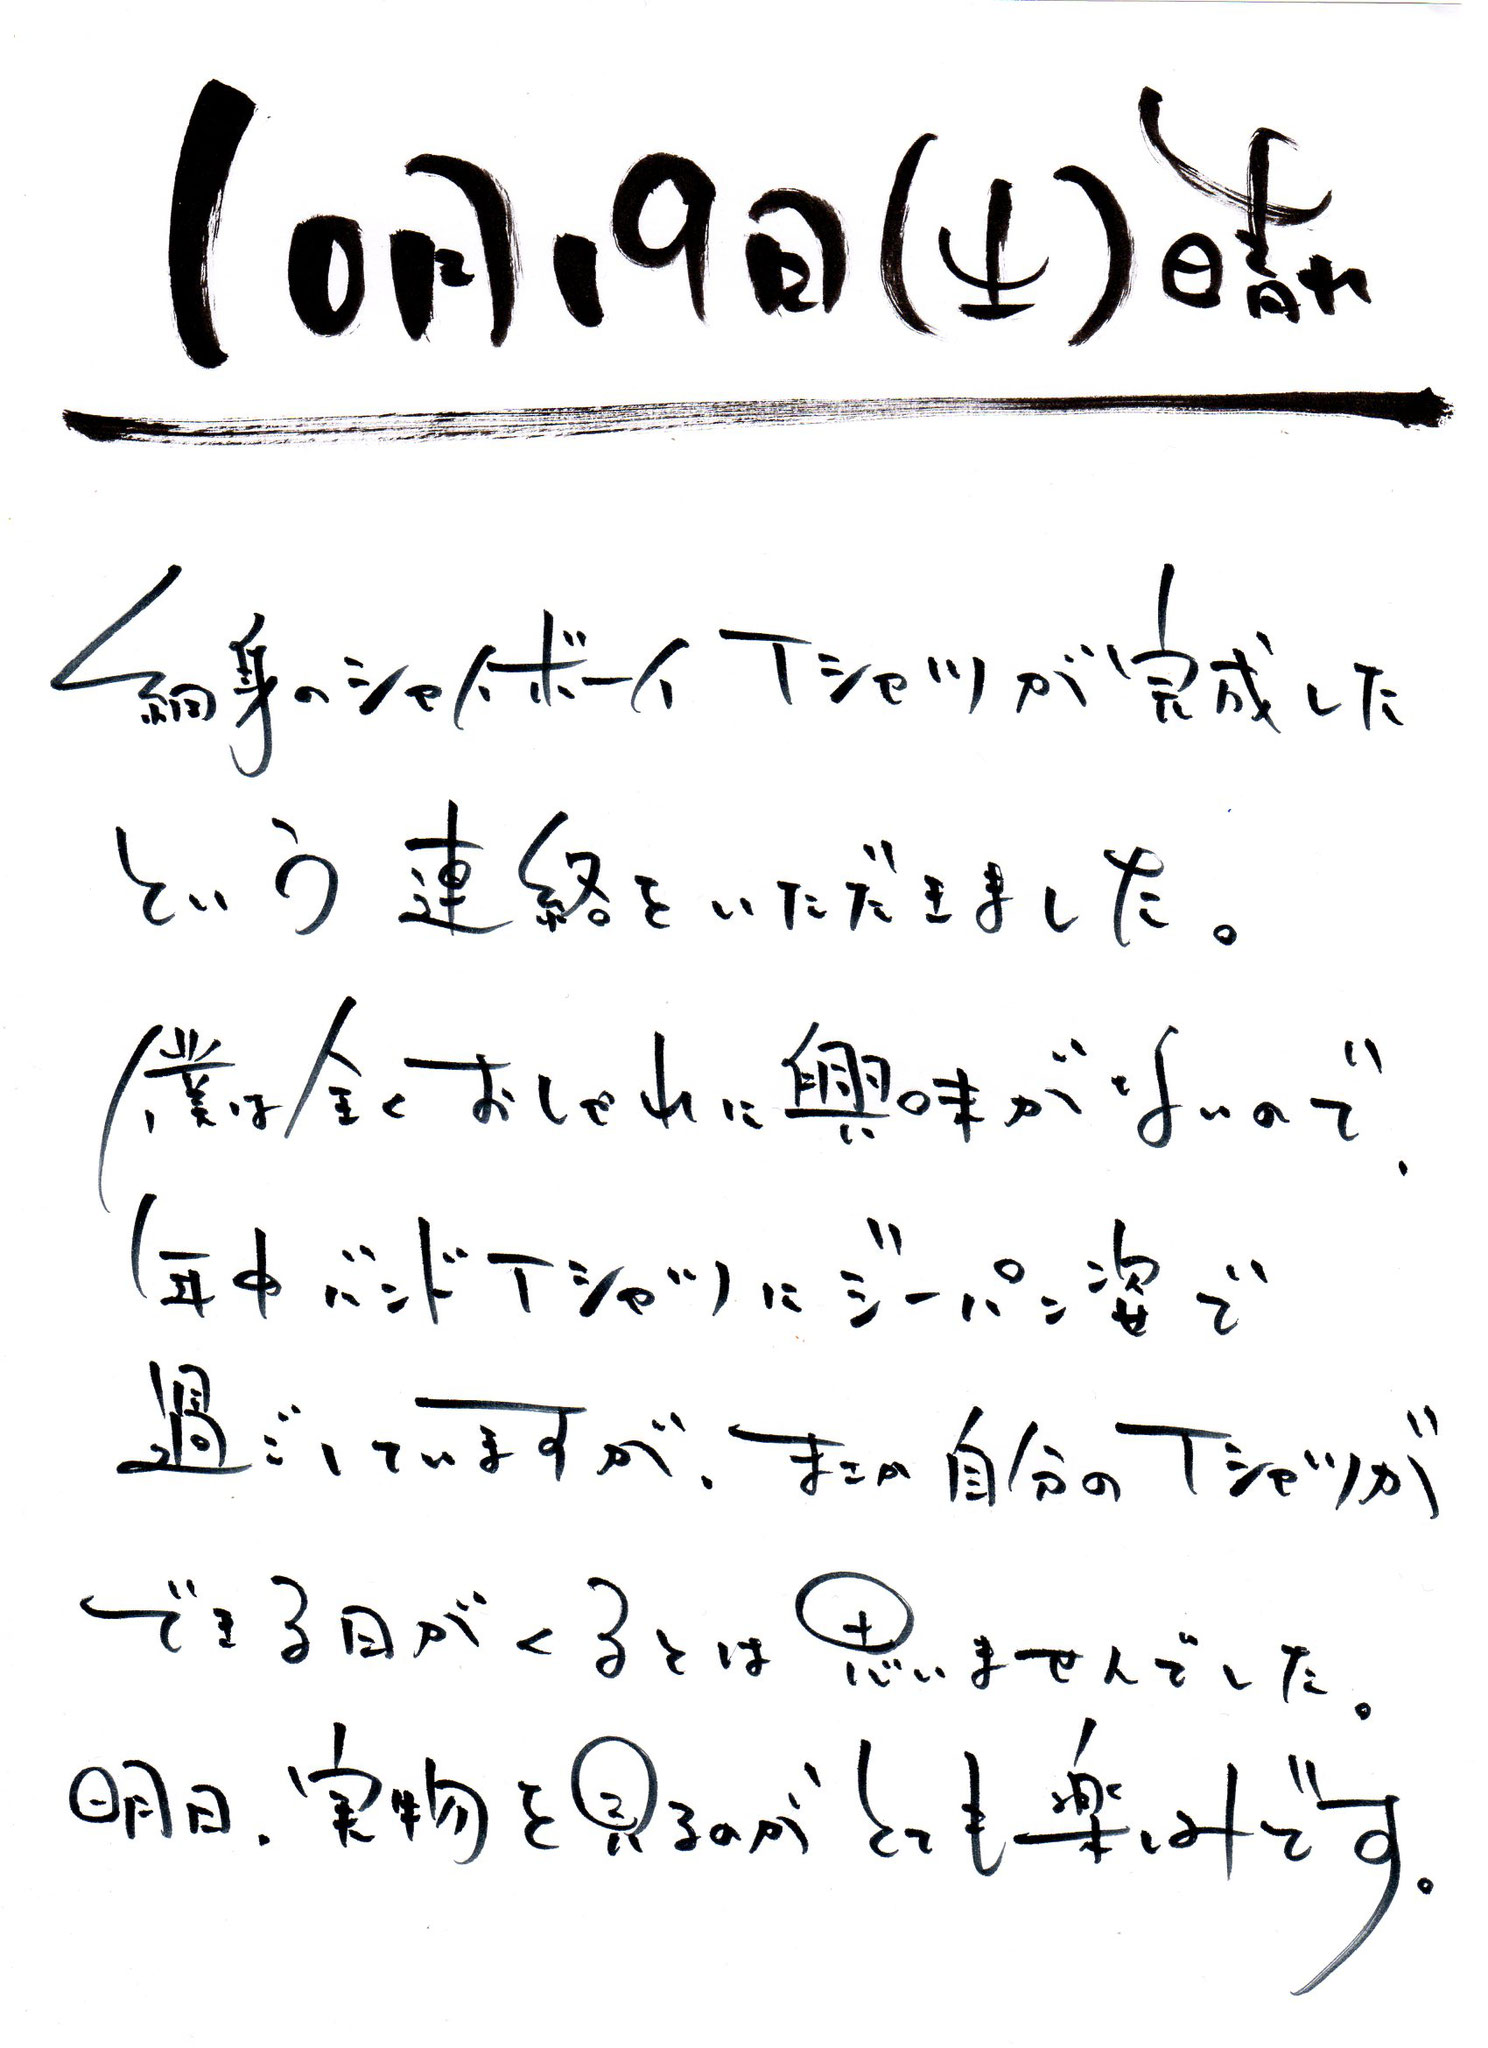 10月19日(土)晴れ
細身のシャイボーイTシャツが完成した
という連絡をいただきました。
僕は全くおしゃれに興味がないので、
年中バンドTシャツにジーパン姿で
過ごしていますが、まさか自分のTシャツが
できる日がくるとは思いませんでした。
明日、実物を見るのがとても楽しみです。